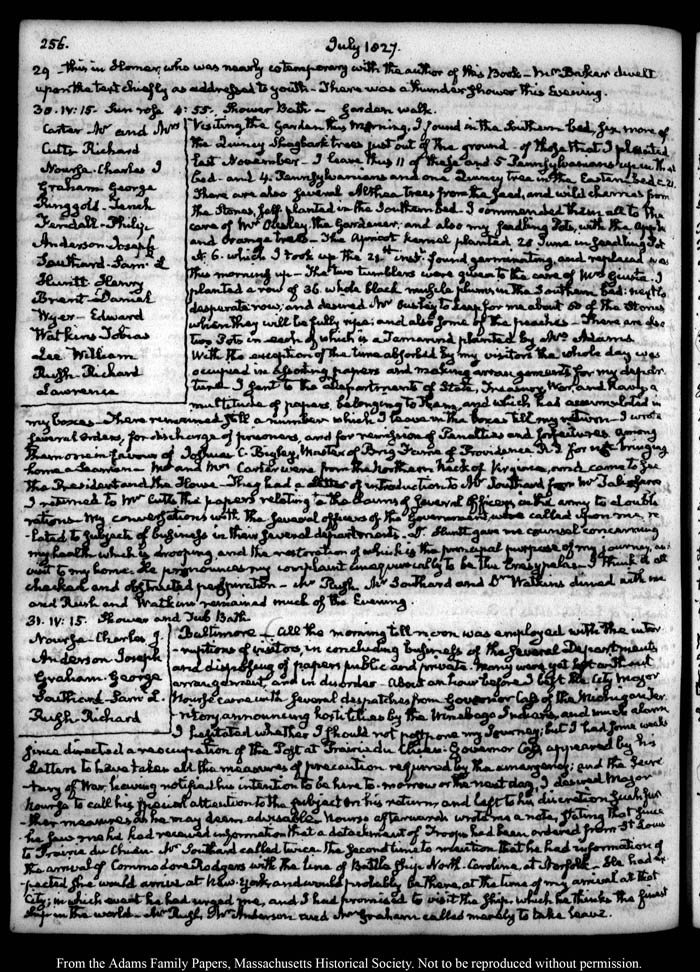 256.
July 1827.
29 this in Homer, who was nearly cotemporary with the author of this Book - Mr Baker dwelt
upon the text chiefly as addressed to youth - There was a thunder shower this Evening.
30. IV: 15. Sun rose 4:55. Shower Bath - Garden walk.
Carter Mr and Mrs
Cutts Richard
Nourse. Charles J
Graham George
Ringgold. Tench
Kendall - Philip
Anderson Joseph
Southard - Saml L
Huntt Henry
Brent - Daniel
Wyer - Edward
Watkins Tobias
Lee William
Rush - Richard
Lawrence
Visiting the Garden this Morning, I found in the Southern bed, six more of
the Quincy Shagbark trees just out of the ground - of those that I planted
last November - I leave this 11 of these and 5 Pennsylvanians up in that
bed - and 4 Pennsylvanians and one Quincy tree in the Eastern bed - 21.
There are also several Althea trees from the seed, and wild cherries from
the Stones, self planted in the Southern bed - I commended them all to the
care of Mr Ousley the Gardener, and also my seedling Pots, with the Apple
and orange trees - The Apricot kernel planted, 26 June in seedling Pot
N. 6. which I took up the 21st inst. found germinating, and replaced was
this morning up - The two tumblers were given to the care of Mrs Giusta. I
planted a row of 36 whole black muscle plums, in the Southern bed: next to
desperate row; and desired Mr Ousley to keep for me about 60 of the Stones
when they will be fully ripe; and also some of the peaches - There are also
two Pots in each of which is a Tamarind planted by Mrs Adams
With the exception of the time absorbed by my visitors the whole day was
occupied in assorting papers and making arrangements for my depar-
ture. I sent to the Departments of State, Treasury, War, and Navy, a
multitude of papers, belonging to them, and which had accumulated in
my boxes - There remained still a number which I leave in the boxes till my return - I wrote
several Orders, for discharge of prisoners, and for remission of Penalties and forfeitures among
them one in favour of Joshua C. Bugbey, Master of Brig Fame of Providence R.I. for not bringing
home a Seaman - Mr and Mrs Carter were from the Northern Neck of Virginia, and came to see
the President and the House - They had a letter of introduction to Mr Southard from Mr Taliaferro
I returned to Mr Cutts the papers relating to the claims of several Officers in the army to double
rations - My conversations with the several officers of the Government, were called upon me, re-
lated to subjects of business in their several departments. Dr Huntt gave me counsel concerning
my health which is drooping and the restoration of which is the principal purpose of my Journey, as
visit to my home. He pronounces my complaint unequivocally to be the Erysipelas - I think it all
checked and obstructed perspiration - Mr Rush, Mr Southard and Dr Watkins dined with me
and Rush and Watkins remained much of the Evening.
31. IV: 15. Shower and Tub Bath.
Nourse - Charles J.
Anderson Joseph
Graham - George
Southard - Saml L.
Rush - Richard
Baltimore - All the morning till noon was employed with the inter-
ruptions of visitors, in concluding business of the several Departments
and disposing of papers public and private. Many were yet left without
arrangement, and in disorder - About an hour before I left the City Major
Nourse came with several despatches from Governor Cass of the Michigan Ter-
ritory announcing hostilities by the Winebago Indians, and much alarm
I hesitated whether I should not postpone my Journey; but I had some weeks
since directed a reoccupation of the Post at Prairie du Chien: Governor Cass appeared by his
Letters to have taken all the measures of precaution required by the emergency; and the Secre-
tary of War, having notified his intention to be here to-morrow or the next day, I desired Major
Nourse to call his special attention to the subject on his return, and left to his discretion such fur-
ther measures as he may deem adviseable. Nourse afterwards wrote me a note, stating that since
he saw me he had received information that a detachment of Troops had been ordered from St. Louis
to Prairie du Chien. Mr Southard called twice. the second time to mention that he had information of
the arrival of Commodore Rodgers with the Line of Battle Ship North-Carolina, at Norfolk - She had ex-
pected she would arrive at New-York, and would probably be there, at the time of my arrival at that
City; in which event he had urged me, and I had promised to visit the Ship, which he thinks the finest
ship in the world - Mr Rush, Mr Anderson and Mr Graham called merely to take leave.
From the Adams Family Papers, Massachusetts Historical Society. Not to be reproduced without permission.